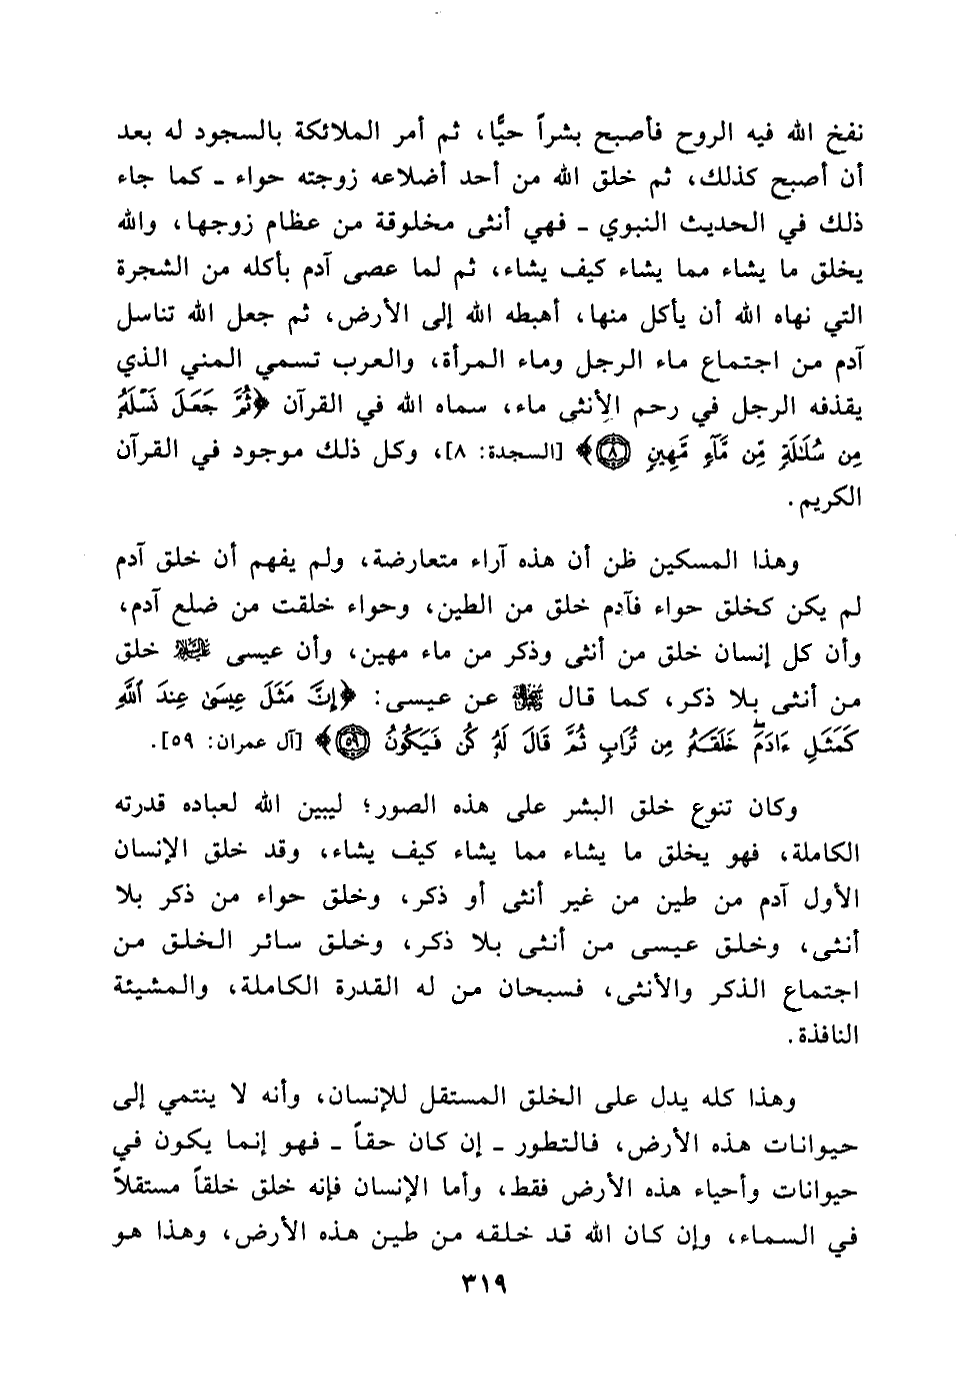 نفخ الله فيه الروح فأصبح بشراً حيًّا، ثم أمر الملائكة بالسجود له بعد
أن أصبح كذلك، ثم خلق الله من أحد أضلاعه زوجته حواء ـ كما جاء
ذلك في الحديث النبوي ـ فهي أنثى مخلوقة من عظام زوجها، والله
يخلق ما يشاء مما يشاء كيف يشاء، ثم لما عصى آدم بأكله من الشجرة
التي نهاه الله أن يأكل منها، أهبطه الله إلى الأرض، ثم جعل الله تناسل
آدم من اجتماع ماء الرجل وماء المرأة، والعرب تسمي المني الذي
يقذفه الرجل في رحم الأنثى ماء، سماه الله في القرآن ﴿ثُمَّ جَعَلَ نَسْلَهُۥ
مِن سُلَٰلَةٍ مِّن مَّآءٍ مَّهِينٍ ٨﴾ [السجدة: ٨]، وكل ذلك موجود في القرآن
الكريم.
وهذا المسكين ظن أن هذه آراء متعارضة، ولم يفهم أن خلق آدم
لم يكن كخلق حواء فآدم خلق من الطين، وحواء خلقت من ضلع آدم،
وأن كل إنسان خلق من أنثى وذكر من ماء مهين، وأن عيسى عليه السلام خلق
من أنثى بلا ذكر، كما قال ﷻ عن عيسى: ﴿إِنَّ مَثَلَ عِيسَىٰ عِندَ ٱللَّهِ
كَمَثَلِ ءَادَمَۖ خَلَقَهُۥ مِن تُرَابٍ ثُمَّ قَالَ لَهُۥ كُن فَيَكُونُ ٥٩﴾ [آل عمران: ٥٩].
وكان تنوع خلق البشر على هذه الصور؛ ليبين الله لعباده قدرته
الكاملة، فهو يخلق ما يشاء مما يشاء كيف يشاء، وقد خلق الإنسان
الأول آدم من طين من غير أنثى أو ذكر، وخلق حواء من ذكر بلا
أنثى، وخلق عيسى من أنثى بلا ذكر، وخلق سائر الخلق من
اجتماع الذكر والأنثى، فسبحان من له القدرة الكاملة، والمشيئة
النافذة.
وهذا كله يدل على الخلق المستقل للإنسان، وأنه لا ينتمي إلى
حيوانات هذه الأرض، فالتطور ـ إن كان حقاً ـ فهو إنما يكون في
حيوانات وأحياء هذه الأرض فقط، وأما الإنسان فإنه خلق خلقاً مستقلاً
في السماء، وإن كان الله قد خلقه من طين هذه الأرض، وهذا هو
٣١٩